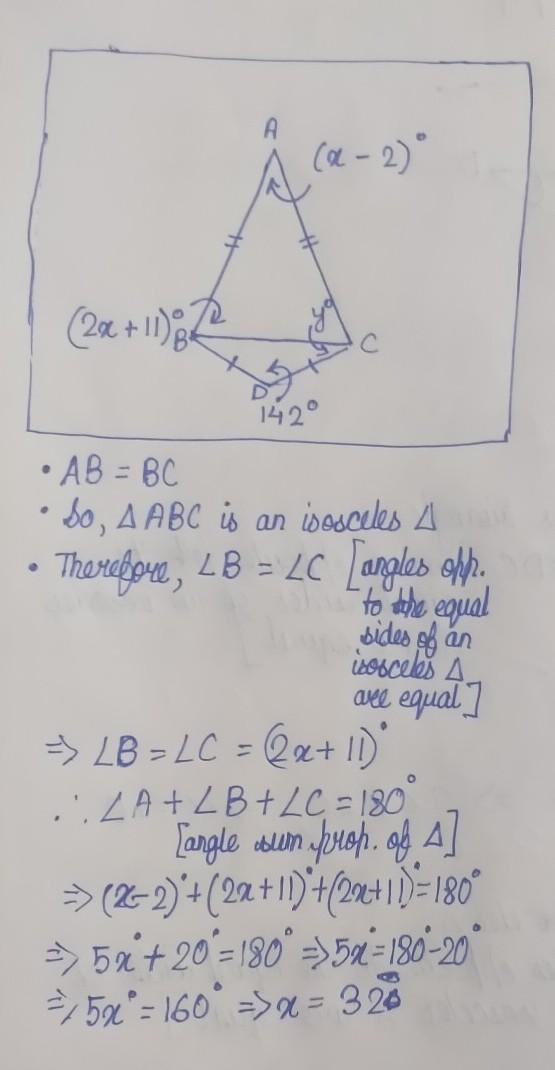 A
(x - 2)°
(2x + 11)°
B
y°
C
D
142°
• AB = BC
• So, △ABC is an isosceles △
• Therefore, ∠B = ∠C [angles opp.
to the equal
sides of an
isosceles △
are equal]
=> ∠B = ∠C = (2x + 11)°
∴ ∠A + ∠B + ∠C = 180°
[angle sum prop. of △]
=> (x-2)° + (2x+11)° + (2x+11)° = 180°
=> 5x° + 20° = 180° => 5x° = 180° - 20°
=> 5x° = 160° => x = 32